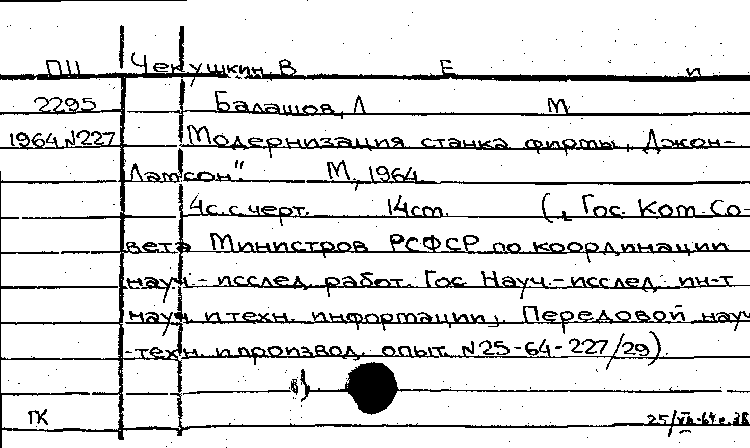 ПII Чекушкин, В Е и
2295 Балашов, Л М
1964 N227 Модернизация станка фирмы „Джон-
Латсон". М, 1964
4с. с черт. 14 см. (2 Гос. Ком. Со-
вета Министров РСФСР по координации
науч-исслед работ. Гос Науч-исслед ин-т
науч и техн. информации, Передовой науч
-техн. и производ. опыт. N25-64-227/29)
ПК